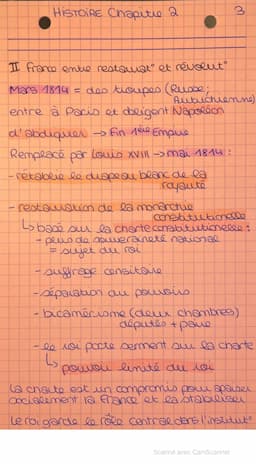 HISTOIRE Chapitre 2
3
II France entre restaurat° et révolut°
Mars 1814 = des troupes (Russe;
Autrichienne)
entre à Paris et obligent Napoléon
d'abdiquer → fin 1ère Empire
Remplacé par Louis XVIII → mai 1814 :
- rétablie le drapeau blanc de la
royauté
- restauration de la monarchie
constitutionnelle
↳ basé sur la charte constitutionnelle :
- plus de souveraineté national
= sujet du roi
- suffrage censitaire
- séparation du pouvoirs
- bicamérisme (deux chambres)
députés + paire
- le roi porte serment sur la charte
↳ pouvoir limité du roi
La charte est un compromis pour apaiser
socialement la France et la stabiliser
Le roi garde le rôle central dans l'institut°
Scanné avec CamScanner